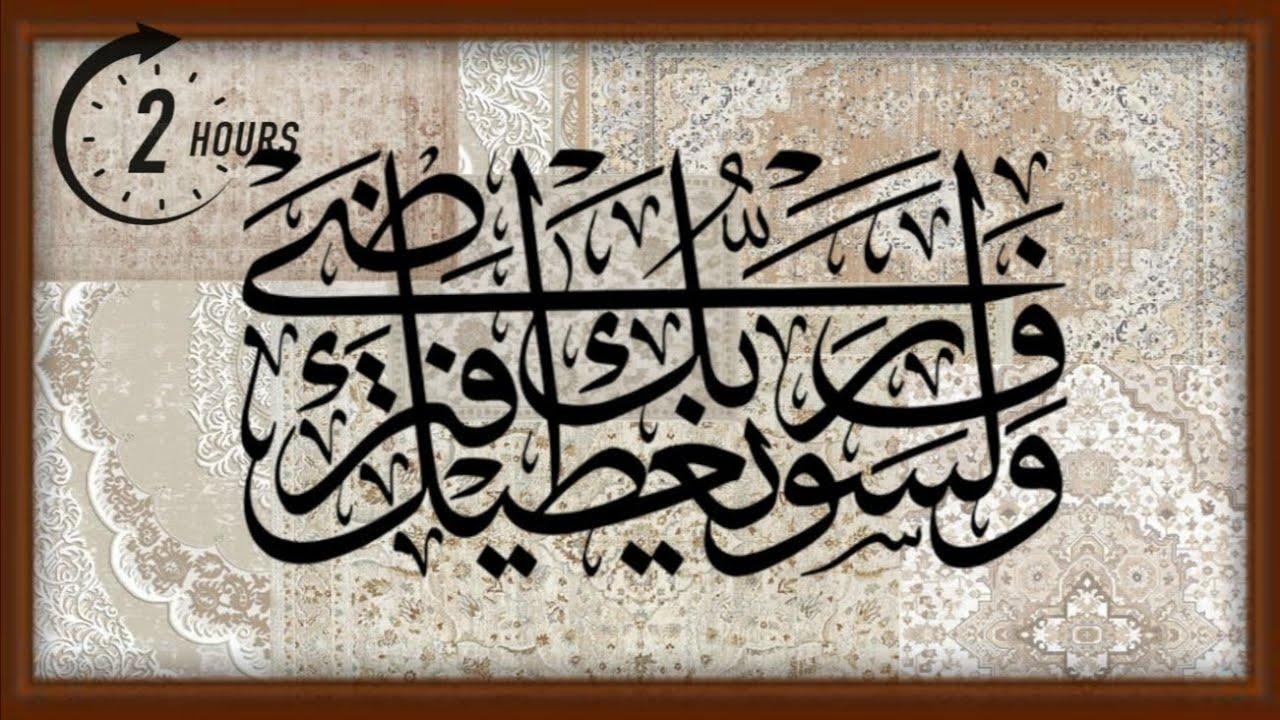 2 HOURS
ولسوف يعطيك ربك فترضى